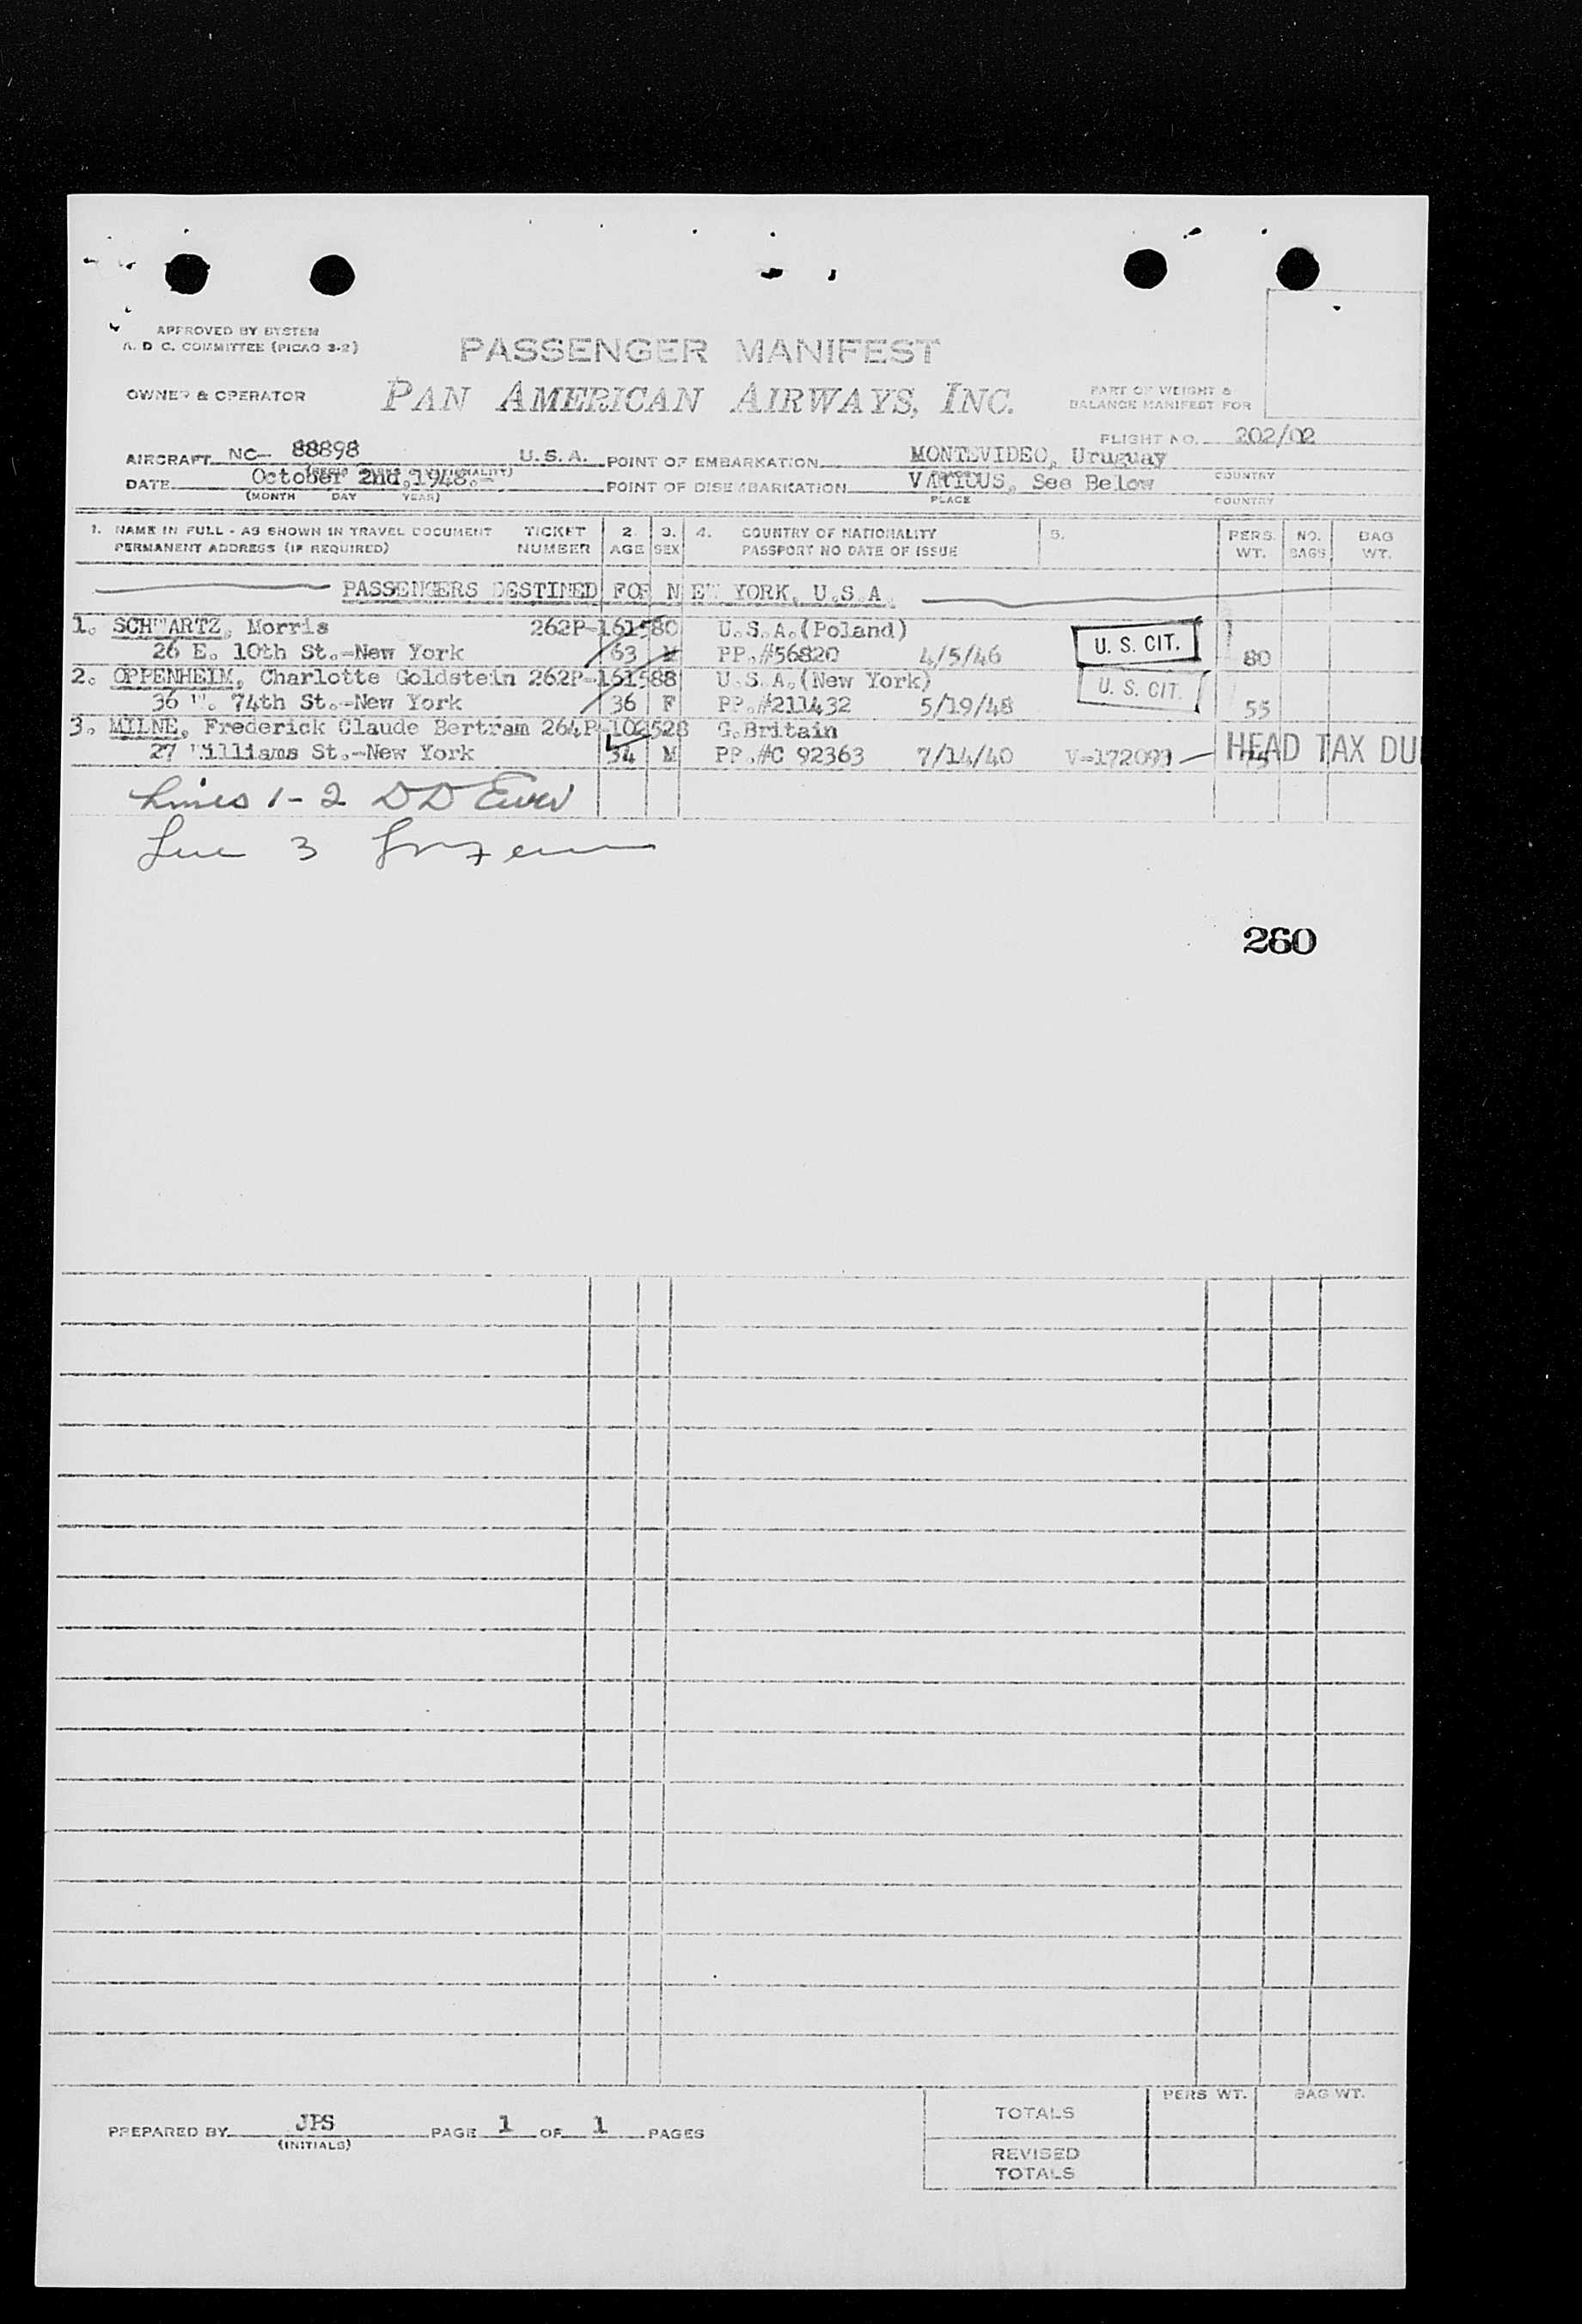 APPROVED BY SYSTEM
A. D C. COMMITTEE (PICAO 3-2)
PASSENGER MANIFEST
OWNER & OPERATOR PAN AMERICAN AIRWAYS, INC.
PART OF WEIGHT &
BALANCE MANIFEST FOR
FLIGHT NO. 202/02
AIRCRAFT NC- 88898 U.S.A. POINT OF EMBARKATION MONTEVIDEO, Uruguay
COUNTRY
DATE October 2nd,1948.- POINT OF DISEMBARKATION VARIOUS, See Below
(MONTH DAY YEAR) PLACE COUNTRY
1. NAME IN FULL - AS SHOWN IN TRAVEL DOCUMENT TICKET 2. 3. 4. COUNTRY OF NATIONALITY 5. PERS. NO. BAG
PERMANENT ADDRESS (IF REQUIRED) NUMBER AGE SEX PASSPORT NO DATE OF ISSUE WT. BAGS WT.
PASSENGERS DESTINED FOR NEW YORK, U.S.A.
1. SCHWARTZ, Morris 262P-161580 U.S.A.(Poland)
26 E. 10th St.-New York 63 M PP.#56820 4/5/46 U. S. CIT. 80
2. OPPENHEIM, Charlotte Goldstein 262P-161588 U.S.A.(New York)
36 W. 74th St.-New York 36 F PP.#211432 5/19/48 U. S. CIT. 55
3. MILNE, Frederick Claude Bertram 264P-102528 G.Britain
27 Williams St.-New York 34 M PP.#C 92363 7/14/40 V-172093 75 HEAD TAX DU
Lines 1-2 DD
Line 3
260
TOTALS PERS WT. BAG WT.
PREPARED BY JPS PAGE 1 OF 1 PAGES
(INITIALS)
REVISED
TOTALS